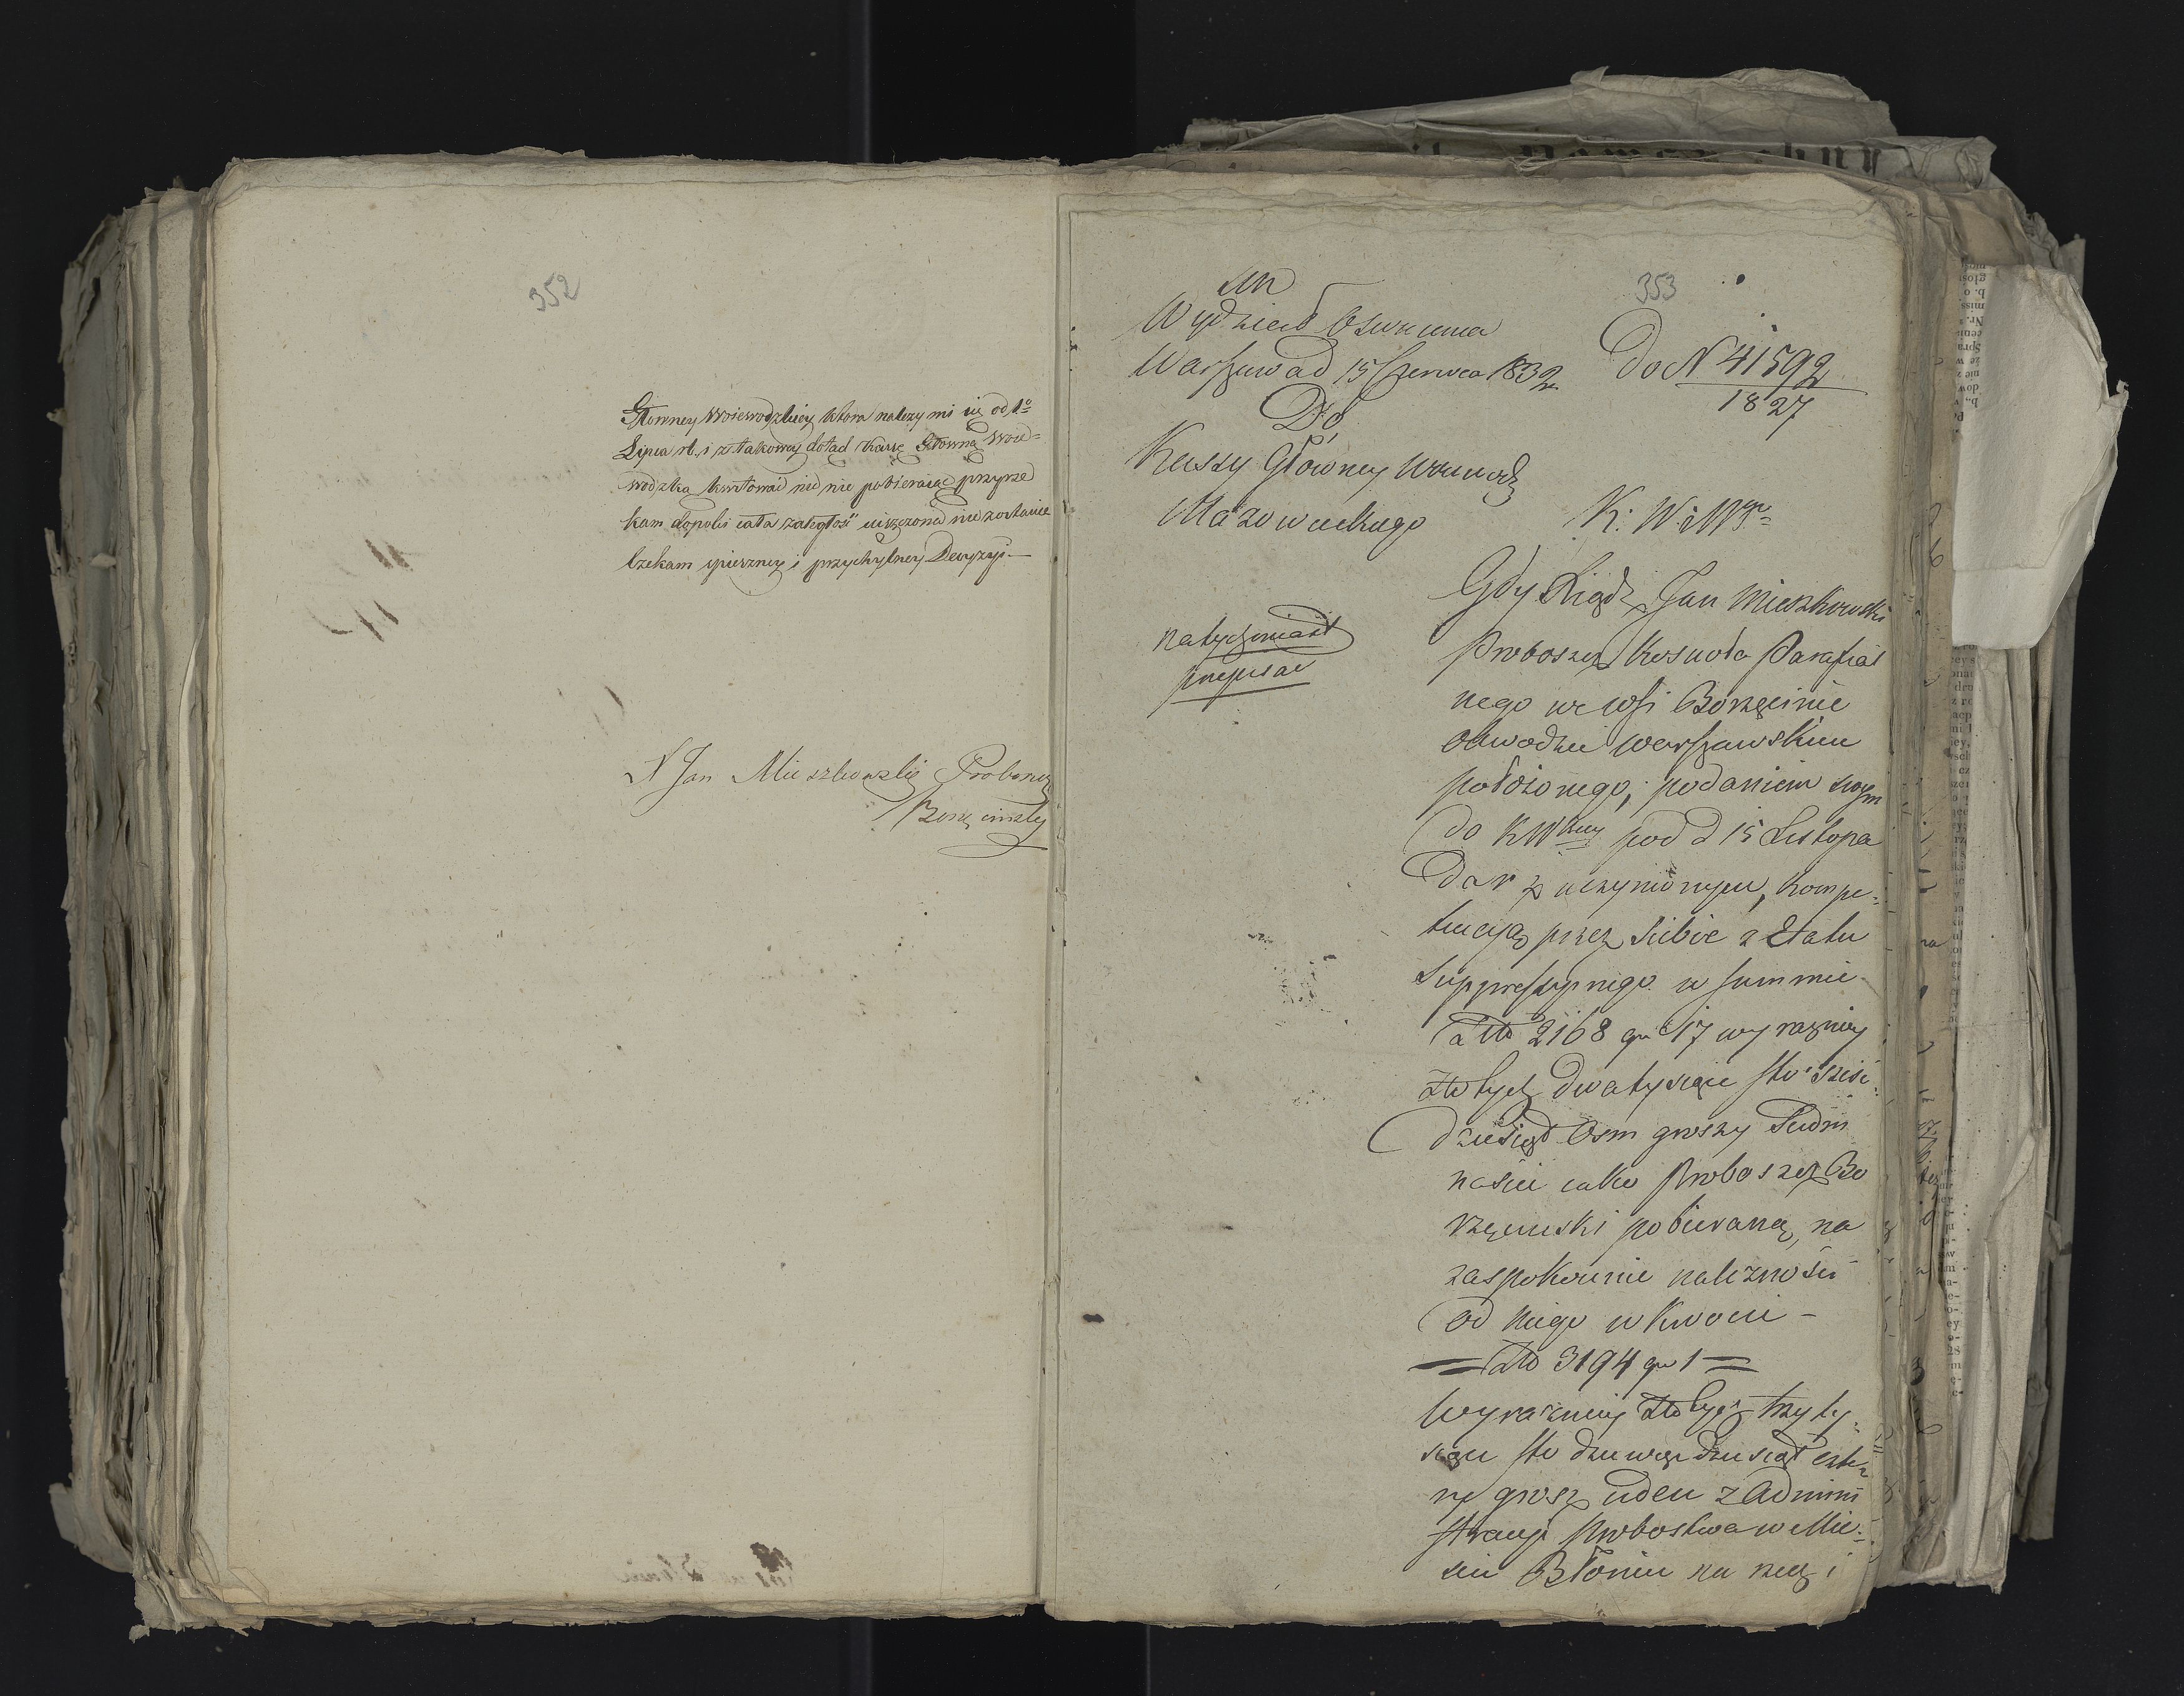 352
Głowney Woiewodzkiey ktora nalezy mi się od 1o
Lipca rb. i z takowey dotąd Kassę Głowną Woie=
wodzką kwitować nie nie pobieraiąc przyrze
kam dopoki cała zaległość uiszczona nie zostanie
Czekam spieszney i przychylney Decyzyi.—
X Jan Mieszkowski Proboszcz
Borzęcinski
353
Wydział
Warszawa d 15 Czerwca 1832
Do N 41592
1827
Do
Kassy Główney Woiewodz
Mazowieckiego
K: W: M
natychmiast
przepisać
Gdy Xiądz Jan Mieszkowski
Proboszcz Koscioła Parafial
nego we Wsi Borzęcinie
Obwodzie Warszawskim
położonego, podaniem swym
do KW pod d 15 Listopa
da r z uczynionym, kompe=
tencyą przez siebie z Etatu
Suppressyinego w summie
Złło 2168 gr 17 wyrazniey
złotych dwa tysiące sto sześć
dziesiąt osm groszy siedm
naście iako Proboszcz Bo
rzęcinski pobieraną, na
zaspokoienie należności
od niego w kwocie –
= Złło 3194 gr 1 =
wyrazniey złotych trzy ty=
siące sto dziewięćdziesiąt czte
ry grosz ieden z Admini
stracyi Probostwa w Mie=
ście Błoniu na rzecz i